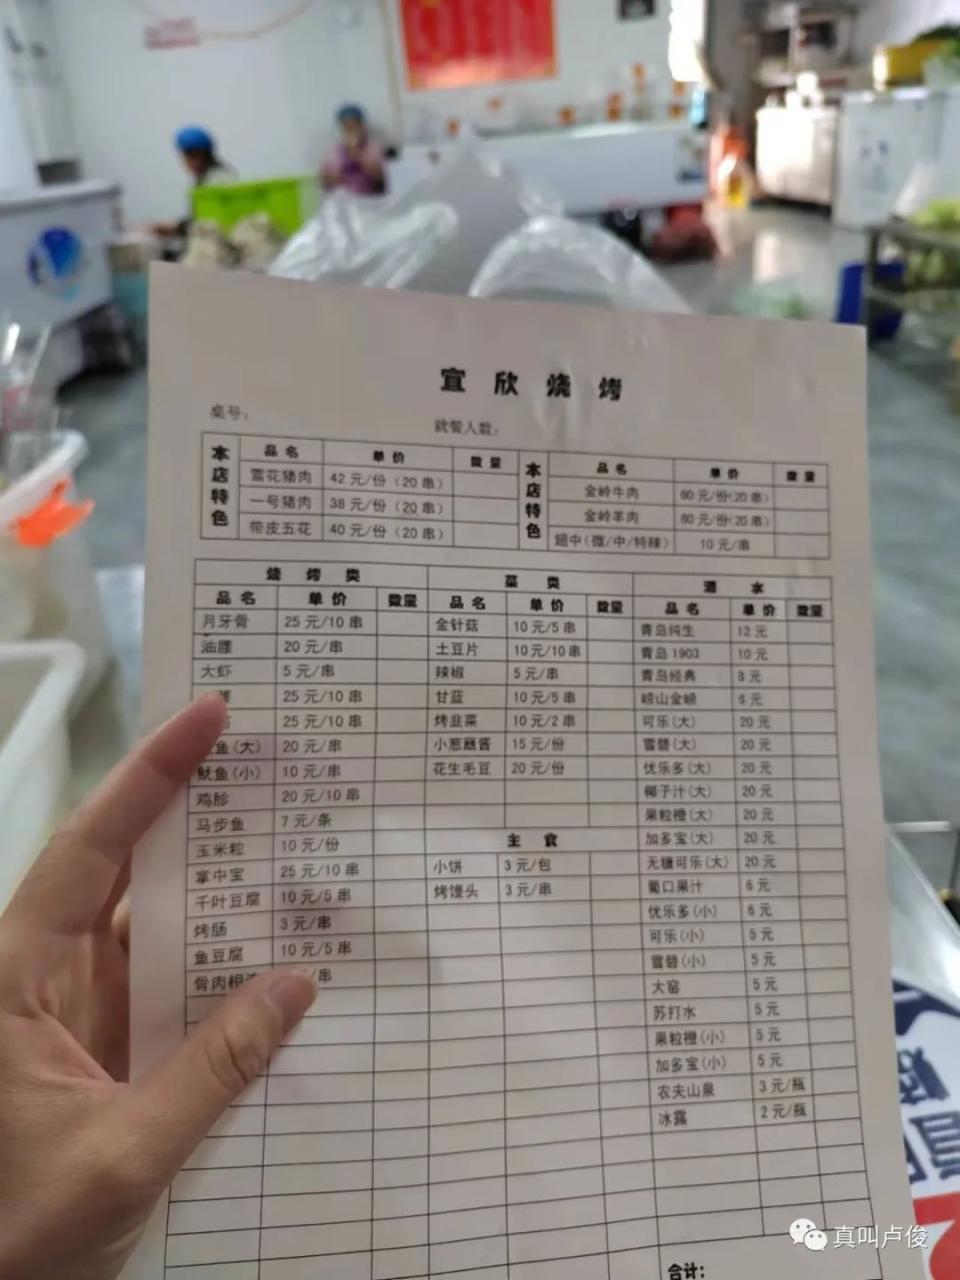 宜欣烧烤
桌号：
就餐人数：
本店特色 品名 单价 数量 本店特色 品名 单价 数量
雪花猪肉 42元/份（20串） 金岭牛肉 60元/份（20串）
一号猪肉 38元/份（20串） 金岭羊肉 60元/份（20串）
带皮五花 40元/份（20串） 翅中(微/中/特辣) 10元/串
烧烤类 菜类 酒水
品名 单价 数量 品名 单价 数量 品名 单价 数量
月牙骨 25元/10串 金针菇 10元/5串 青岛纯生 12元
油腰 20元/串 土豆片 10元/10串 青岛1903 10元
大虾 5元/串 辣椒 5元/串 青岛经典 8元
25元/10串 甘蓝 10元/5串 崂山金崂 6元
25元/10串 烤韭菜 10元/2串 可乐(大) 20元
鱼(大) 20元/串 小葱蘸酱 15元/份 雪碧(大) 20元
鱿鱼(小) 10元/串 花生毛豆 20元/份 优乐多(大) 20元
鸡胗 20元/10串 椰子汁(大) 20元
马步鱼 7元/条 果粒橙(大) 20元
玉米粒 10元/份 主食 加多宝(大) 20元
掌中宝 25元/10串 小饼 3元/包 无糖可乐(大) 20元
千叶豆腐 10元/5串 烤馒头 3元/串 葡口果汁 6元
烤肠 3元/串 优乐多(小) 6元
鱼豆腐 10元/5串 可乐(小) 5元
骨肉相 /串 雪碧(小) 5元
大窑 5元
苏打水 5元
果粒橙(小) 5元
加多宝(小) 5元
农夫山泉 3元/瓶
冰露 2元/瓶
合计：
真叫卢俊